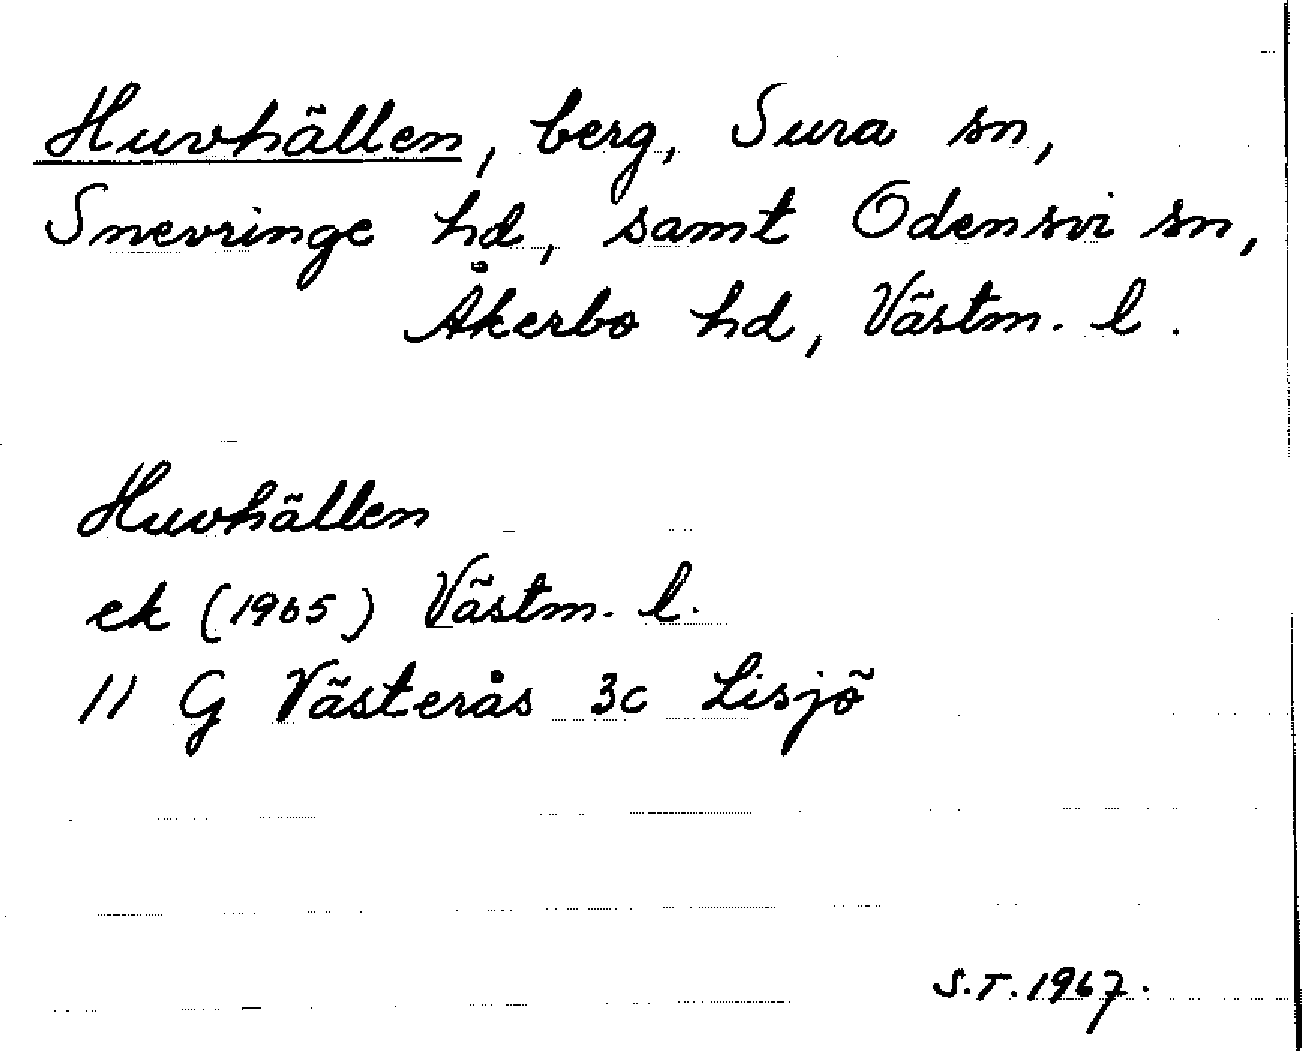 Huvhällen, berg, Sura sn,
Snevringe hd, samt Odensvi sn,
Åkerbo hd, Västm. l.
Huvhällen
ek (1965) Västm. l.
11 G Västerås 3c Lisjö
S.T. 1967.